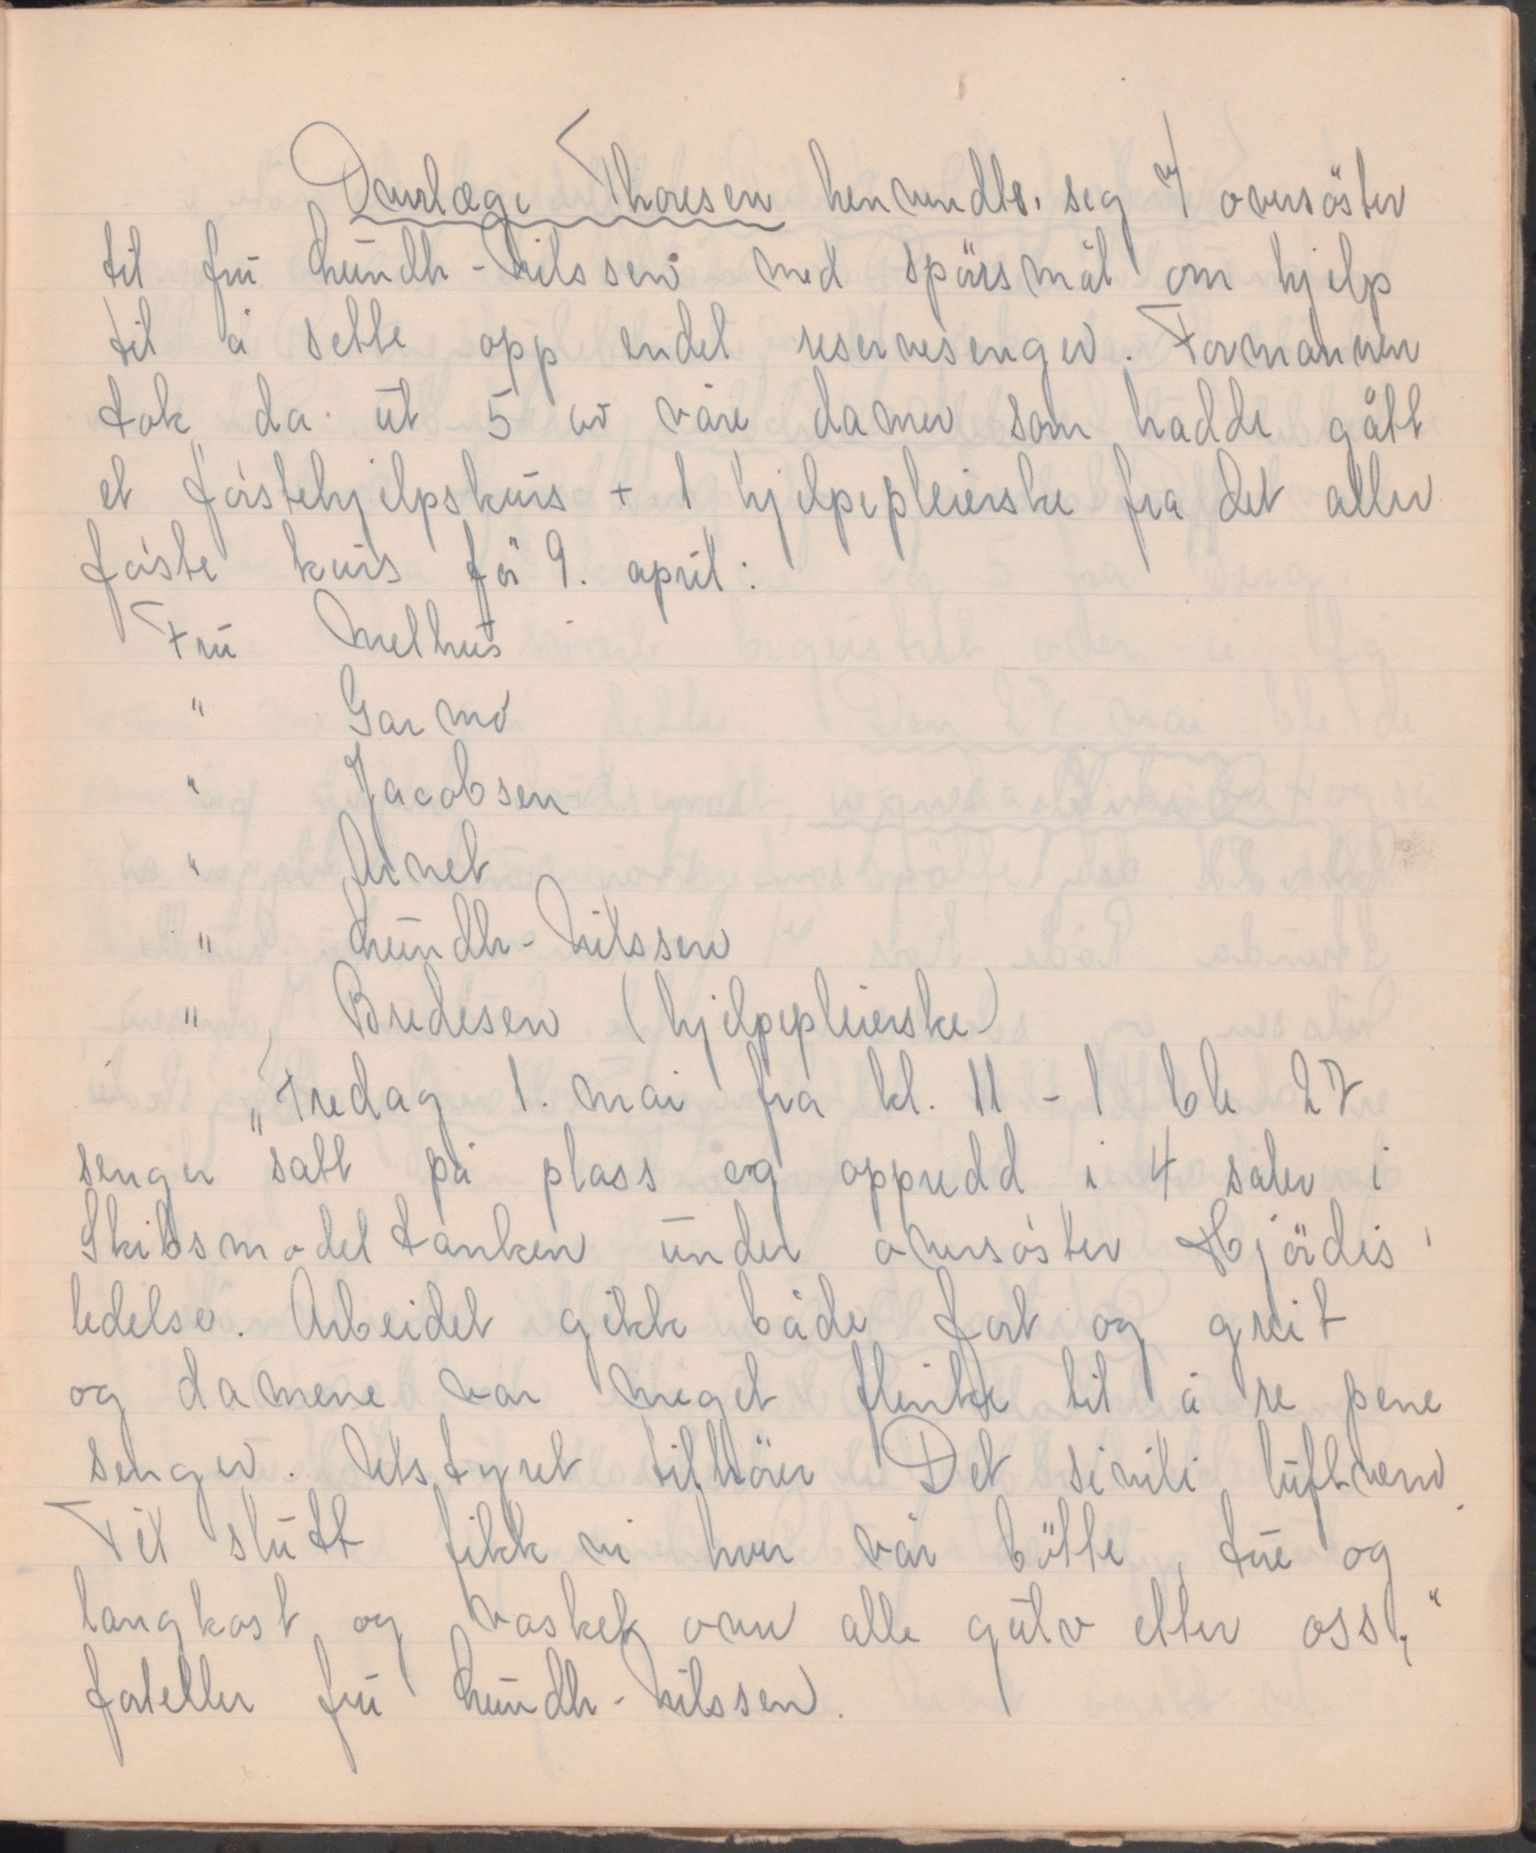 Overlæge Thoresen henvendte seg v/ oversöster
til fru Lundh-Nilssen med spörsmål om hjelp
til å sette opp endel reservesenger. Formannen
tok da ut 5 av våre damer som hadde gått
et förstehjelpskurs + 1 hjelpepleierske fra det aller
förste kurs för 9. april:
Fru Melhus
" Garmo
" Jacobsen
" Arnet
" Lundh-Nilssen
" Bredesen (hjelpepleierske)
„Fredag 1. mai fra kl. 11 - 1 ble 27
senger satt på plass og oppredd i 4 saler i
Skibsmodeltanken under oversöster Hjördis'
ledelse. Arbeidet gikk både fort og greit
og damene var meget flinke til å re pene
senger. Utstyret tilhörer Det sivile luftvern.
Til slutt fikk vi hver vår bötte, fue og
langkost og vasket over alle gulv etter oss,"
forteller fru Lundh-Nilssen.